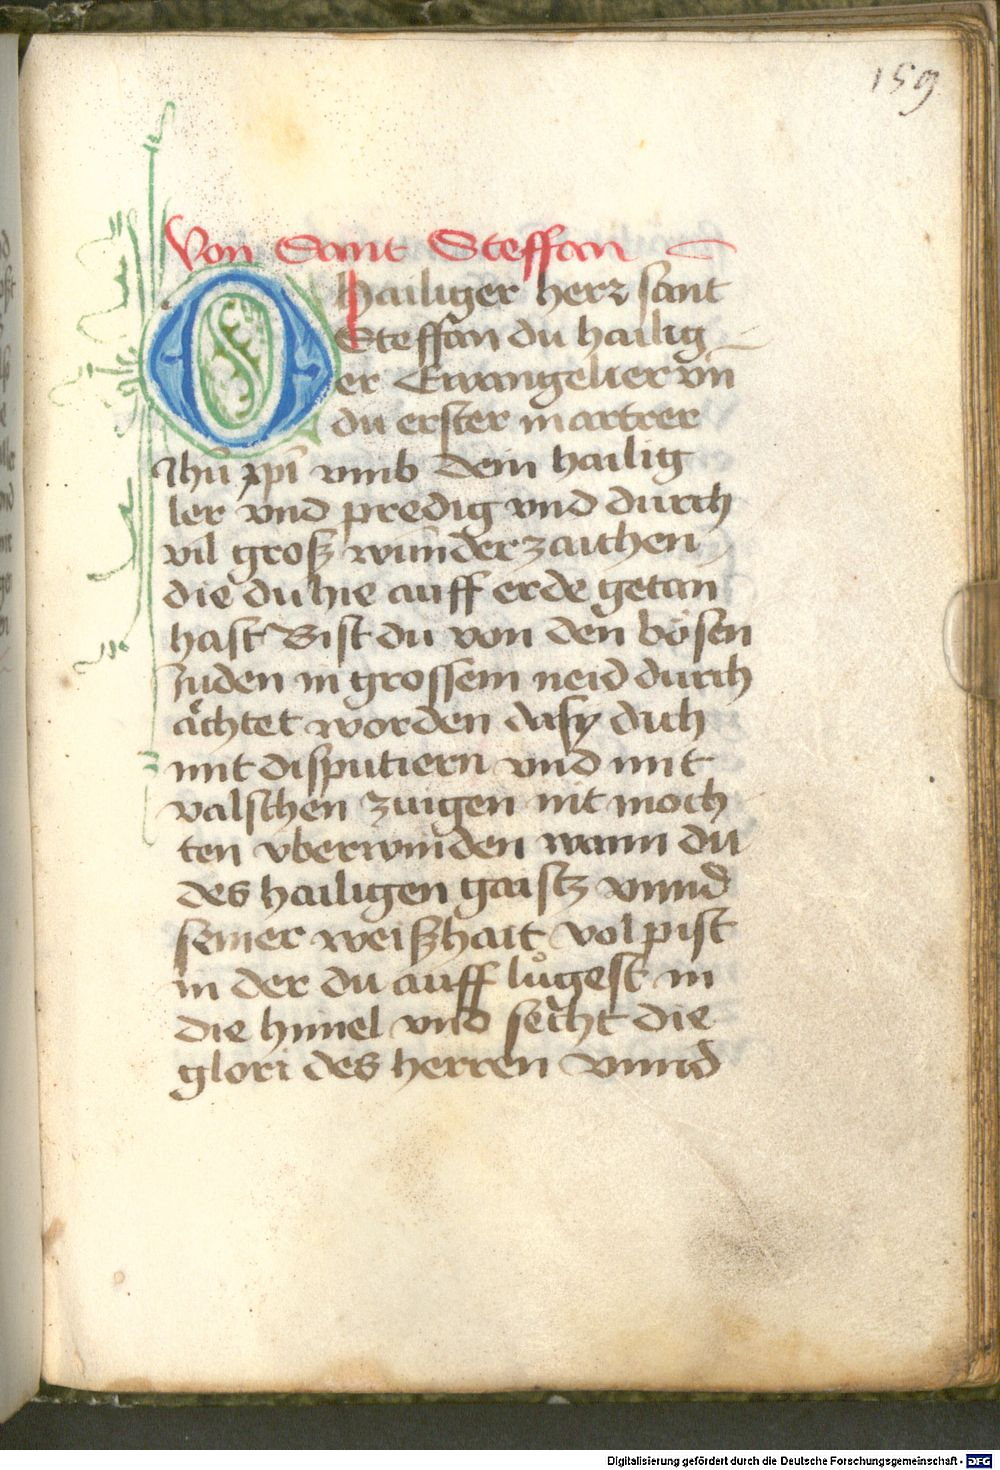 159
Von Sant Steffan
O hailiger herr sant
Steffan du hailig
er Ewangelier vn̄
du erster martrer
Jhū xp̄i vmb dein hailig
ler vnd predig vnd durch
vil groß wunderzaichen
die du hie auff erde getan
hast Bist du von den bösen
Juden in grossem neid durch
ächtet worden da sy dich
mit disputiern vnd mit
valschen zuigen nit moch
ten vberwinden wann du
des hailigen gaistz vnnd
seiner weißhait vol pist
in der du auff lůgest in
die himel vnd secht die
glori des herren vnnd
Digitalisierung gefördert durch die Deutsche Forschungsgemeinschaft - DFG